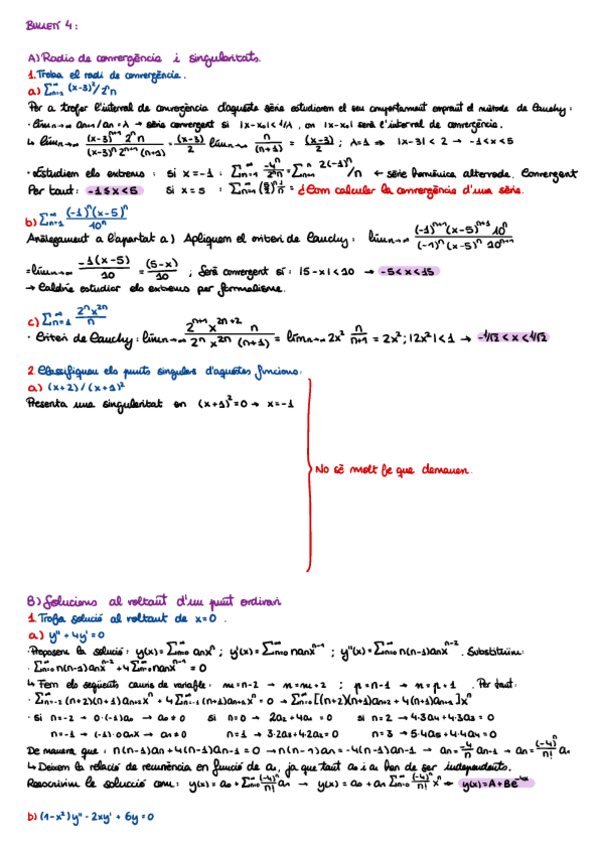 BULLETÍ 4:
A) Radis de convergència i singularitats.
1. Troba el radi de convergència.
a) Σ_{n=1}^∞ (x-3)^n/2^n n
Per a trobar l'interval de convergència d'aquesta sèrie estudiarem el seu comportament emprant el mètode de Cauchy:
· lim_{n→∞} a_{n+1}/a_n = λ → sèrie convergent si |x-x₀| < 1/λ, on |x-x₀| serà l'interval de convergència.
↳ lim_{n→∞} (x-3)^{n+1} 2^n n / (x-3)^n 2^{n+1} (n+1) = (x-3)/2 lim_{n→∞} n/(n+1) = (x-3)/2 ; λ=1 → |x-3| < 2 → -1<x<5
· Estudiem els extrems: si x=-1: Σ_{n=1}^∞ -4^n/2^n n = Σ_{n=1}^∞ 2(-1)^n/n ← sèrie harmònica alternada. Convergent
Per tant: -1≤x<5 si x=5: Σ_{n=1}^∞ (2/2)^n 1/n = ¿Com calcular la convergència d'una sèrie.
b) Σ_{n=1}^∞ (-1)^n(x-5)^n/10^n
Anàlogament a l'apartat a) Apliquem el criteri de Cauchy: lim_{n→∞} (-1)^{n+1}(x-5)^{n+1} 10^n / (-1)^n (x-5)^n 10^{n+1}
= lim_{n→∞} -1(x-5)/10 = (5-x)/10 ; Serà convergent si: |5-x|<10 → -5<x<15
→ Caldria estudiar els extrems per formalisme.
c) Σ_{n=1}^∞ 2^n x^{2n}/n
· Criteri de Cauchy: lim_{n→∞} 2^{n+1} x^{2n+2} n / 2^n x^{2n} (n+1) = lim_{n→∞} 2x² n/n+1 = 2x²; |2x²|<1 → -1/√2 < x < 1/√2
2. Classifiqueu els punts singulars d'aquestes funcions:
a) (x+2)/(x+1)²
Presenta una singularitat en (x+1)²=0 → x=-1
No sé molt be que demanen.
B) Solucions al voltant d'un punt ordinari
1. Troba solució al voltant de x=0.
a) y''+4y'=0
· Proposem la solució: y(x)=Σ_{n=0}^∞ a_n x^n ; y'(x)=Σ_{n=0}^∞ n a_n x^{n-1} ; y''(x)=Σ_{n=0}^∞ n(n-1)a_n x^{n-2}. Substituïm:
· Σ_{n=0}^∞ n(n-1)a_n x^{n-2} + 4Σ_{n=0}^∞ n a_n x^{n-1} = 0
↳ Fem els següents canvis de variable: m=n-2 → n=m+2 ; p=n-1 → n=p+1. Per tant:
· Σ_{n=-2}^∞ (n+2)(n+1)a_{n+2}x^n + 4Σ_{n=-1}^∞ (n+1)a_{n+1}x^n = 0 → Σ_{n=0}^∞ [(n+2)(n+1)a_{n+2} + 4(n+1)a_{n+1}]x^n
· si n=-2 → 0·(-1)a₀ → a₀≠0 si n=0 → 2a₂+4a₁ = 0 si n=2 → 4·3a₄+4·3a₃ = 0
n=-1 → (-1)·0a₁x → a₁≠0 n=1 → 3·2a₃+4·2a₂=0 n=3 → 5·4a₅+4·4a₄ = 0
De manera que: n(n-1)a_n + 4(n-1)a_{n-1} = 0 → n(n-1)a_n = -4(n-1)a_{n-1} → a_n = -4/n a_{n-1} → a_n = (-4)^n/n! a₁
↳ Deixem la relació de recurrència en funció de a₁, ja que tant a₀ i a₁ han de ser independents.
Reescrivim la solució com: y(x) = a₀ + Σ_{n=0}^∞ (-4)^n/n! a₁ → y(x) = a₀ + a₁ Σ_{n=0}^∞ (-4)^n/n! x^n → y(x)=A+Be^{-4x}
b) (1-x²)y''-2xy'+6y=0